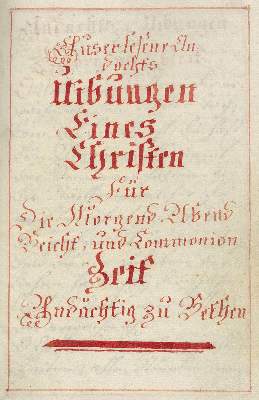 Auserlesene An
dachts
Uibungen
Eines
Christen
Für
Die Morgens Abend
Beicht, und Communion
Zeit
Andächtig zu Bethen